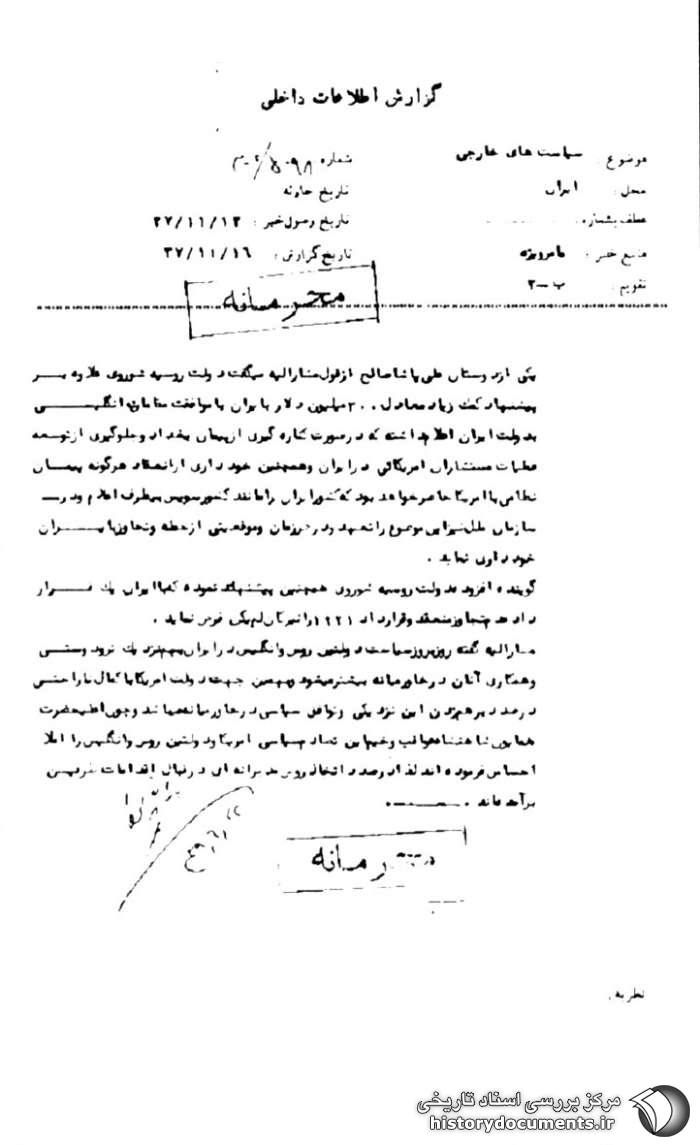 گزارش اطلاعات داخلی
موضوع : سیاست های خارجی
شماره
محل : ایران
تاریخ حادثه
عطف بشماره :
تاریخ وصول خبر : ۳۷/۱۱/۱۳
منبع خبر : مامور ویژه
تاریخ گزارش : ۳۷/۱۱/۱۶
تقویم : ب-۲
محرمانه
یکی از دوستان علی پاشا صالح از قول مشارالیه میگفت دولت روسیه شوروی علاوه بر
پیشنهاد کمک زیاد معادل ۳۰۰ میلیون دلار بایران با موافقت مقامات انگلیسی
بدولت ایران اعلام داشته که در صورت کناره گیری از پیمان بغداد و جلوگیری از توسعه
عملیات مستشاران امریکائی در ایران و همچنین خود داری از انعقاد هرگونه پیمان
نظامی با امریکا حاضر خواهد بود که کشور ایران را مانند کشور سویس بیطرف اعلام و در
سازمان ملل نیز این موضوع را تعهد و در هر زمان و موقعیتی از حمله و تجاوز بایران
خود داری نماید .
گوینده افزود دولت روسیه شوروی همچنین پیشنهاد نموده که با ایران یک قرار
داد عدم تجاوز منعقد و قرارداد ۱۹۲۱ را نیز کان لم یکن فرض نماید .
مشارالیه گفته روز بروز سیاست دولتین روس و انگلیس در ایران بهم نزدیک تر و دوستی
و همکاری آنان در خاورمیانه بیشتر میشود و بهمین جهت دولت امریکا با کمال ناراحتی
در صدد برهم زدن این نزدیکی و توافق سیاسی در خاورمیانه میباشد و چون اعلیحضرت
همایون شاهنشاه عواقب وخیم این تصادم سیاسی امریکا و دولتین روس و انگلیس را کاملا
احساس فرموده اند لذا در صدد اتخاذ روش مدبرانه ای در قبال اقدامات طرفین
برآمده اند .
محرمانه
نظریه :
مرکز بررسی اسناد تاریخی
historydocuments.ir